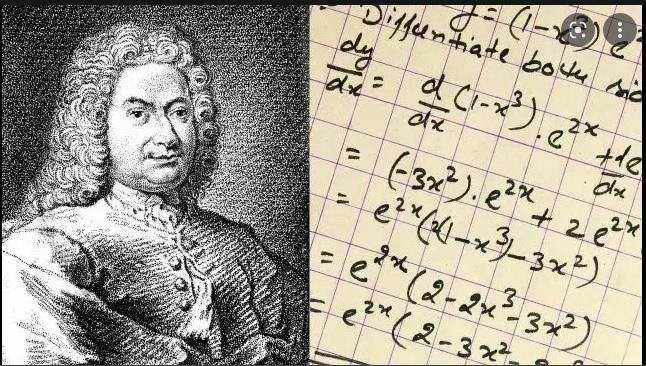 y = (1-x³) e²
Differentiate both
dy/dx = d/dx (1-x³) . e²ˣ +
= (-3x²) . e²ˣ + 2e²ˣ
= e²ˣ (2(1-x³)-3x²)
= e²ˣ (2-2x³-3x²)
= e²ˣ (2-3x²-